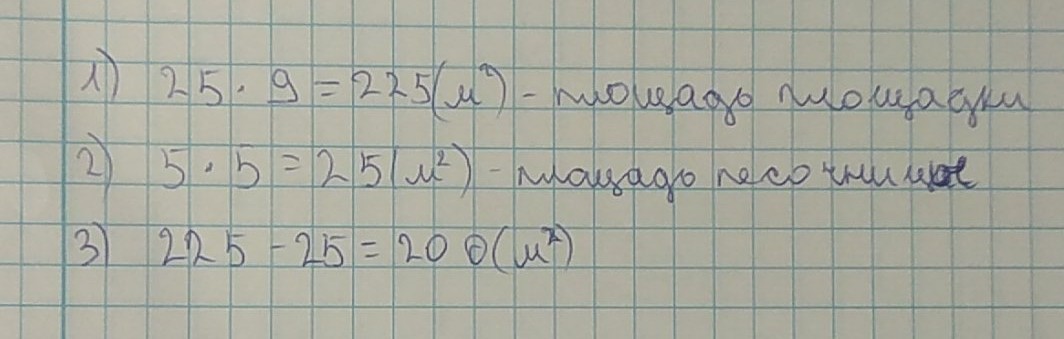 1) 25 · 9 = 225(м²) - площадь площадки
2) 5 · 5 = 25(м²) - площадь песочницы
3) 225 - 25 = 200(м²)